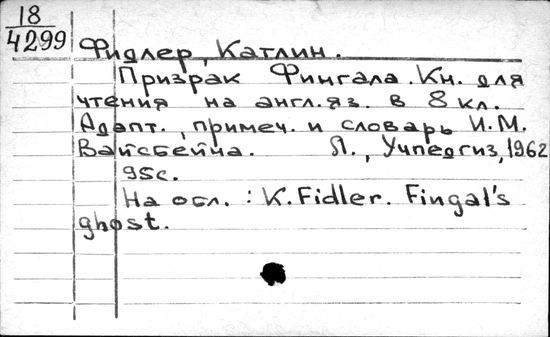 18
4299
Фидлер, Катлин.
Призрак Фингала. Кн. для
чтения на англ. яз. в 8 кл.
Адапт., примеч. и словарь И.М.
Вайсбейна. Л., Учпедгиз, 1962
95с.
На обл. : K. Fidler. Fingal's
ghost.